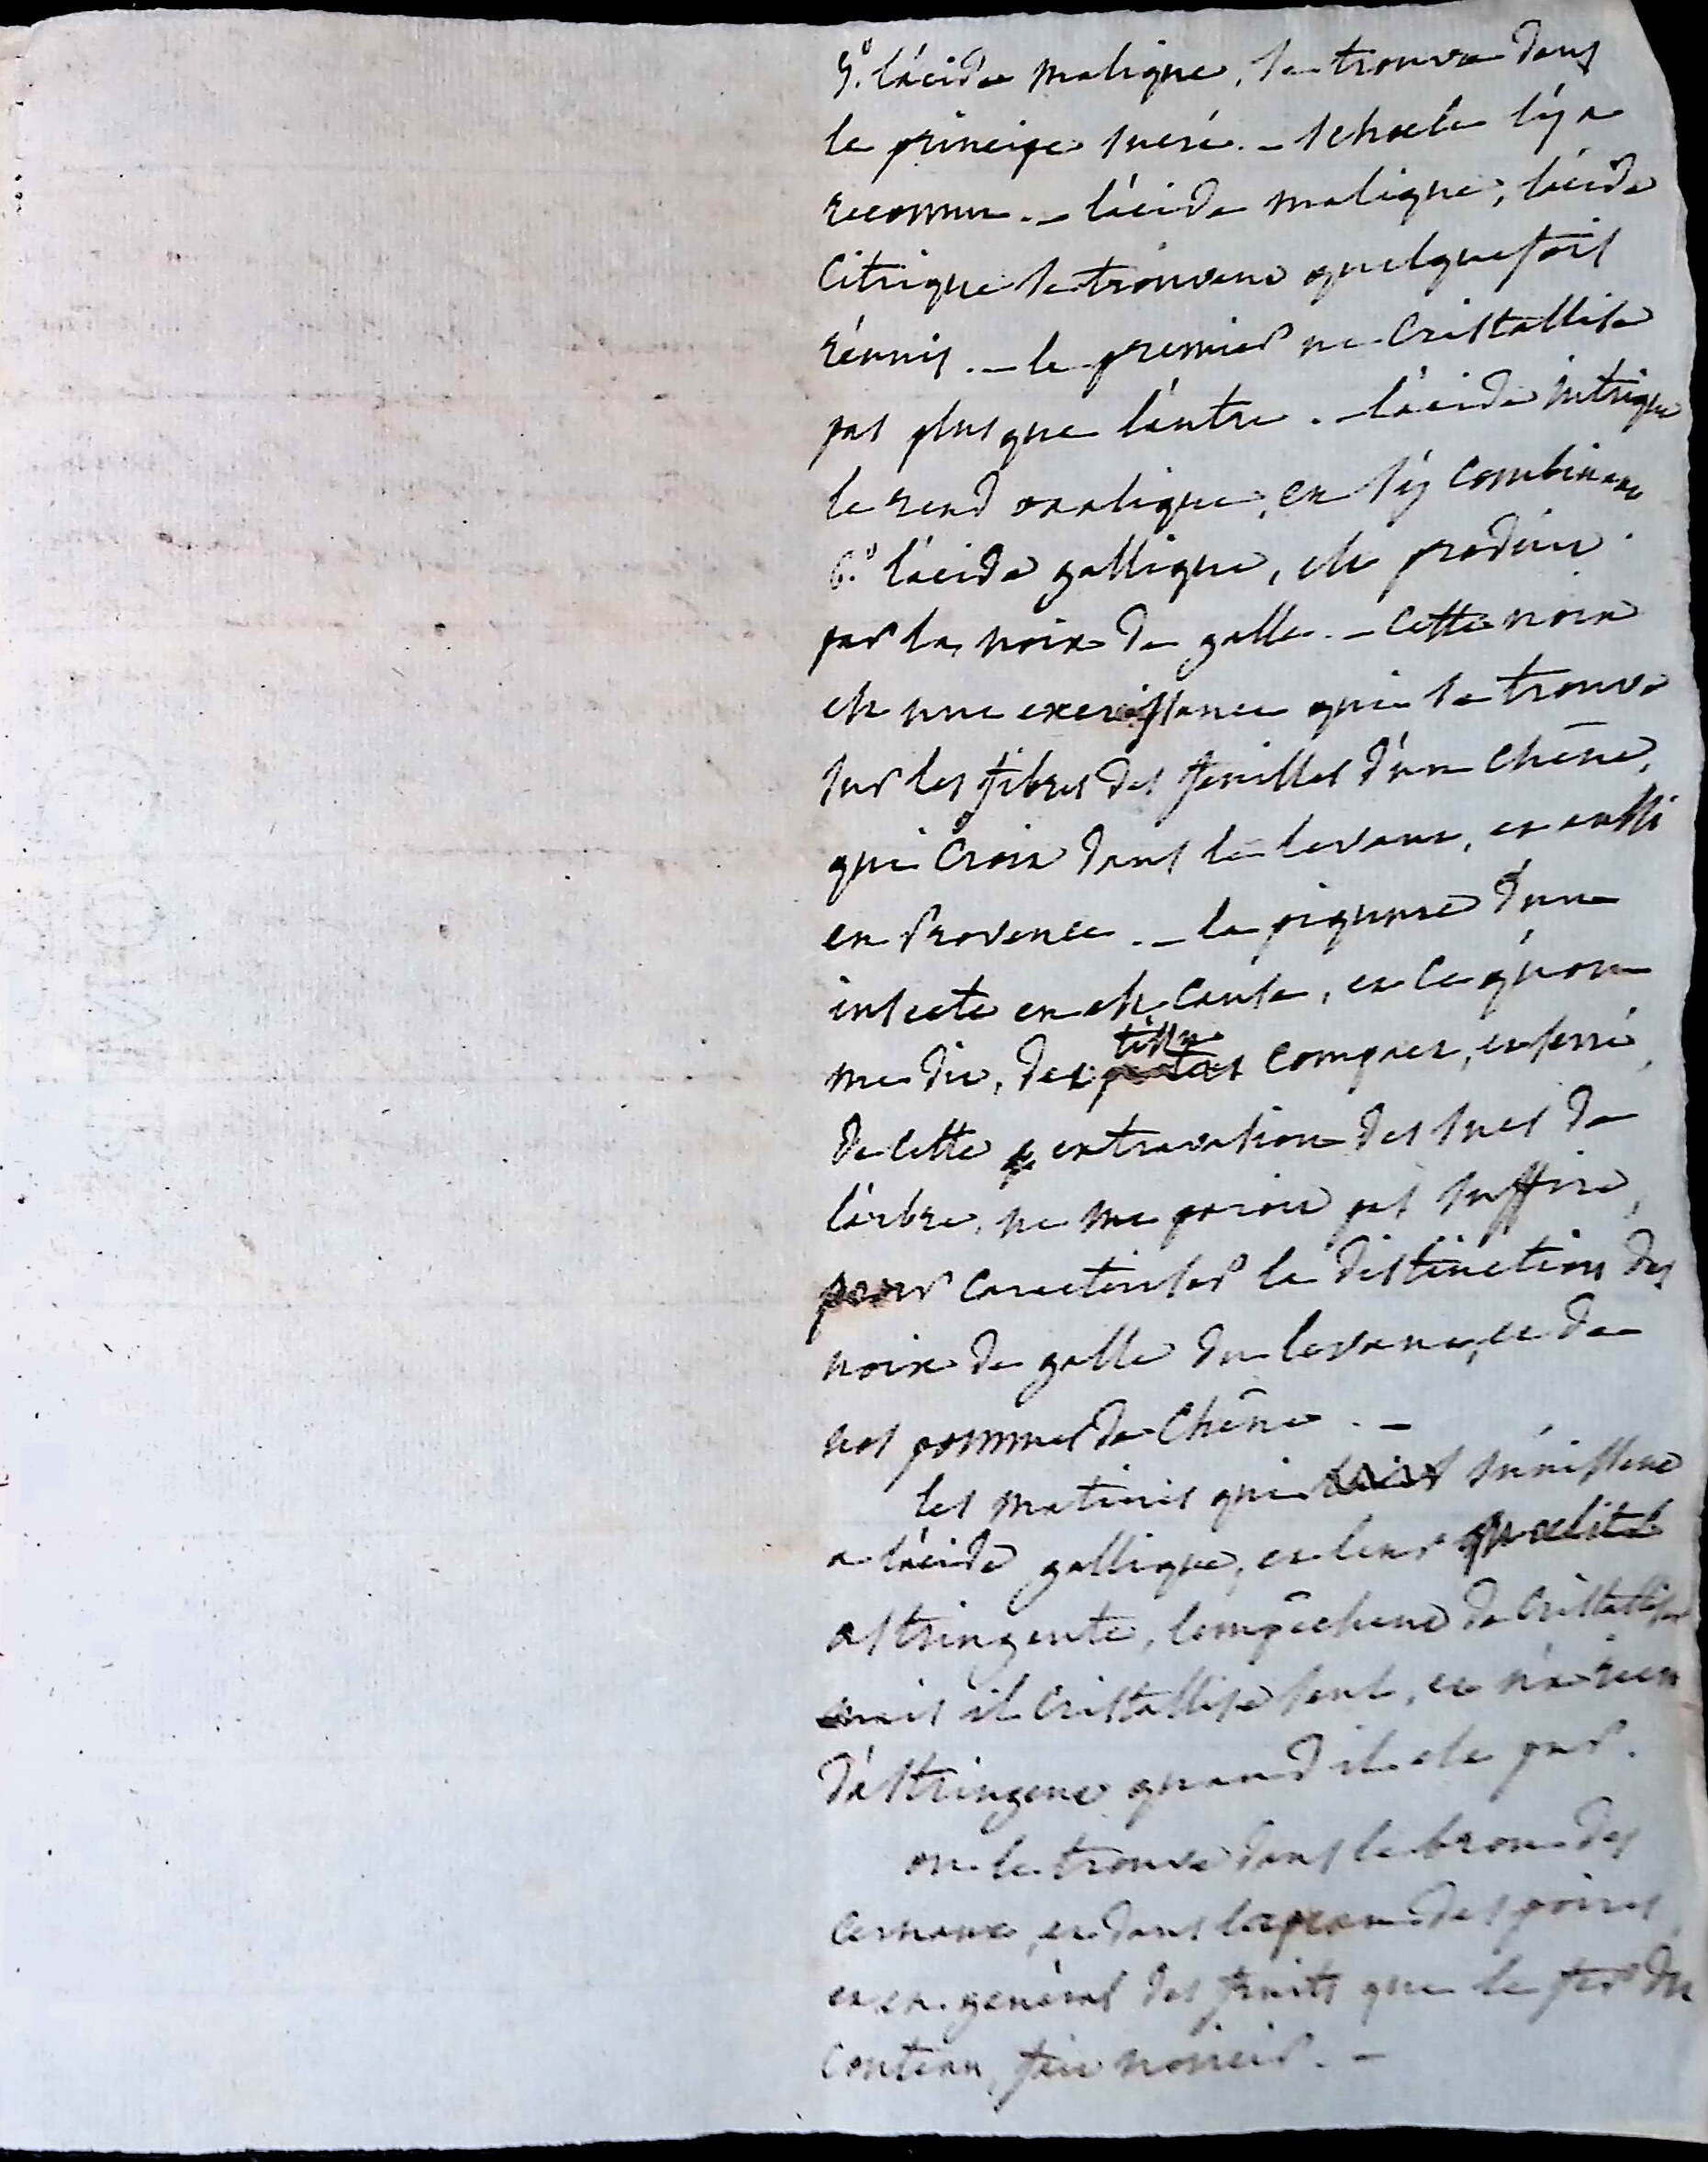 5.° l'acide malique, se trouve dans
le principe sucré. – Schæele l'y a
reconnu. – l'acide malique, l'acide
Citrique se trouvent quelquefois
réunis. – le premier ne Cristallise
pas plus que l'autre. – l'acide nitrique
le rend oxalique, en s'y combinant
6.° l'acide gallique, est produit
par la noix de galle. – Cette noix
est une excroissance qui se trouve
sur les fibres des feuilles d'un Chêne,
qui Croit dans le levant, et aussi
en Provence. – la piqure d'un
insecte en est Cause, et ce qu'on
me dit, du tissu compact, et serré
de cette extravasion des sucs de
l'arbre, ne me paroit pas suffire,
pour caracteriser la distinction des
noix de galle du levant, et de
nos pommes de Chêne. –
les matieres qui s'unissent
a l'acide gallique, et leur qualité
astringente, l'empêchent de Cristalliser
mais il Cristallise seul, et n'a rien
d'astringent quand il est pur.
on le trouve dans le brou des
Cernaux, et dans la peau des poires,
et en général des fruits que le fer du
Couteau, fait noircir. –